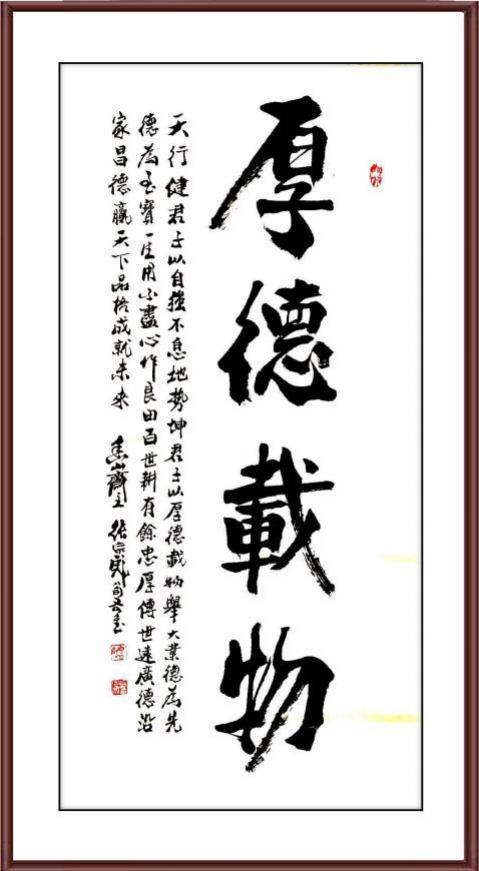 厚德載物
天行健君子以自強不息地勢坤君子以厚德載物舉大業德為先
德為至寶一生用不盡心作良田百世耕有餘忠厚傳世遠廣德沿
家昌德贏天下品格成就未來